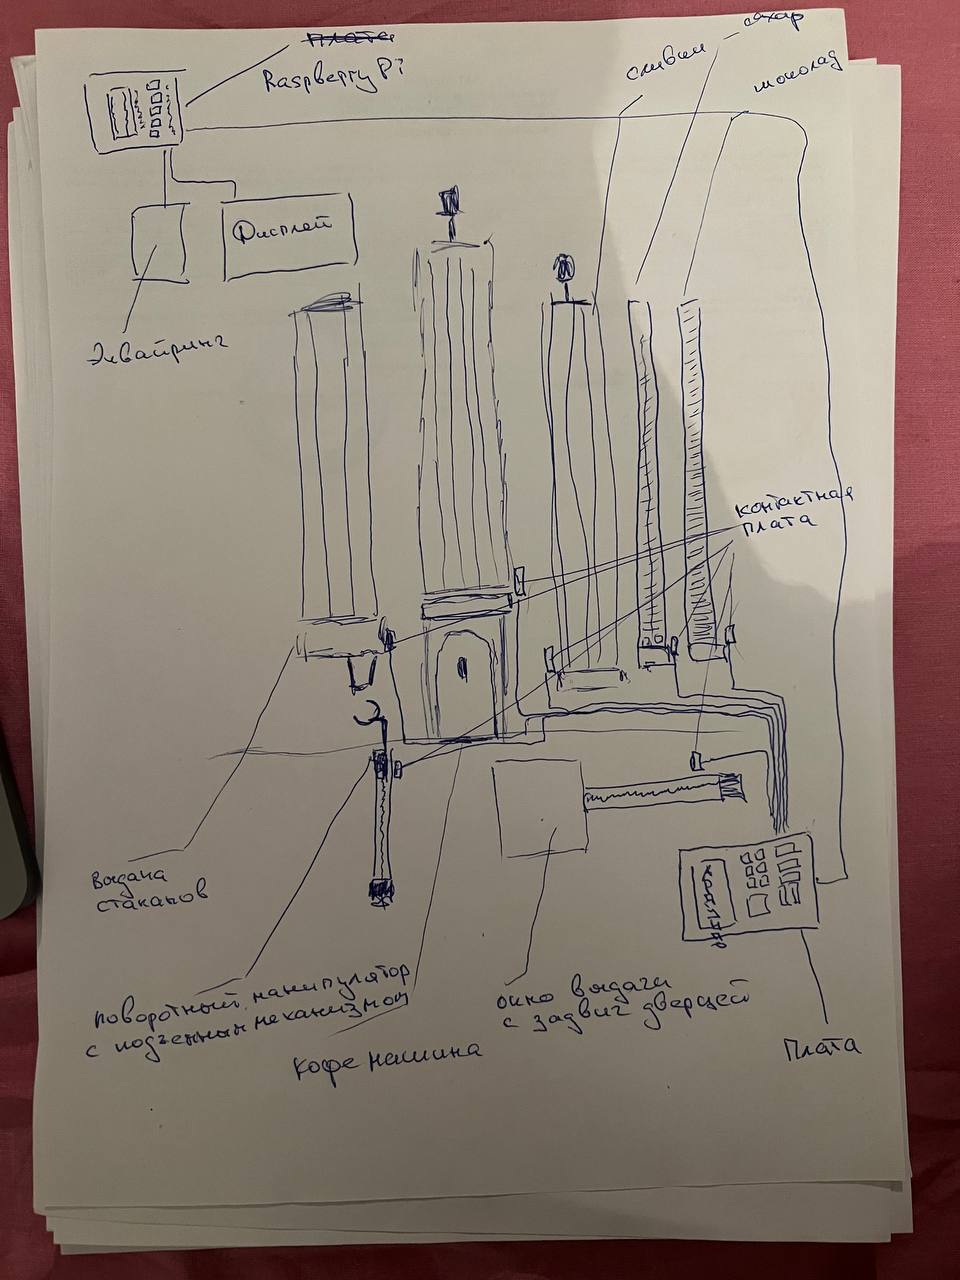 плата
Raspberry Pi
сливки
сахар
шоколад
Дисплей
Эквайринг
контактная
плата
Выдача
стаканов
поворотный манипулятор
с подъемным механизмом
Кофе машина
окно выдачи
с задвиг дверцей
Плата